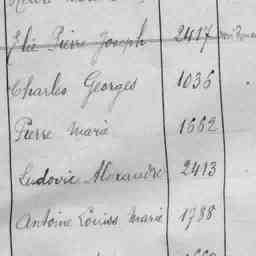 Elie Pierre Joseph 2417
Charles Georges 1036
Pierre Marie 1662
Ludovic Alexandre 2413
Antoine Louiss Marie 1788